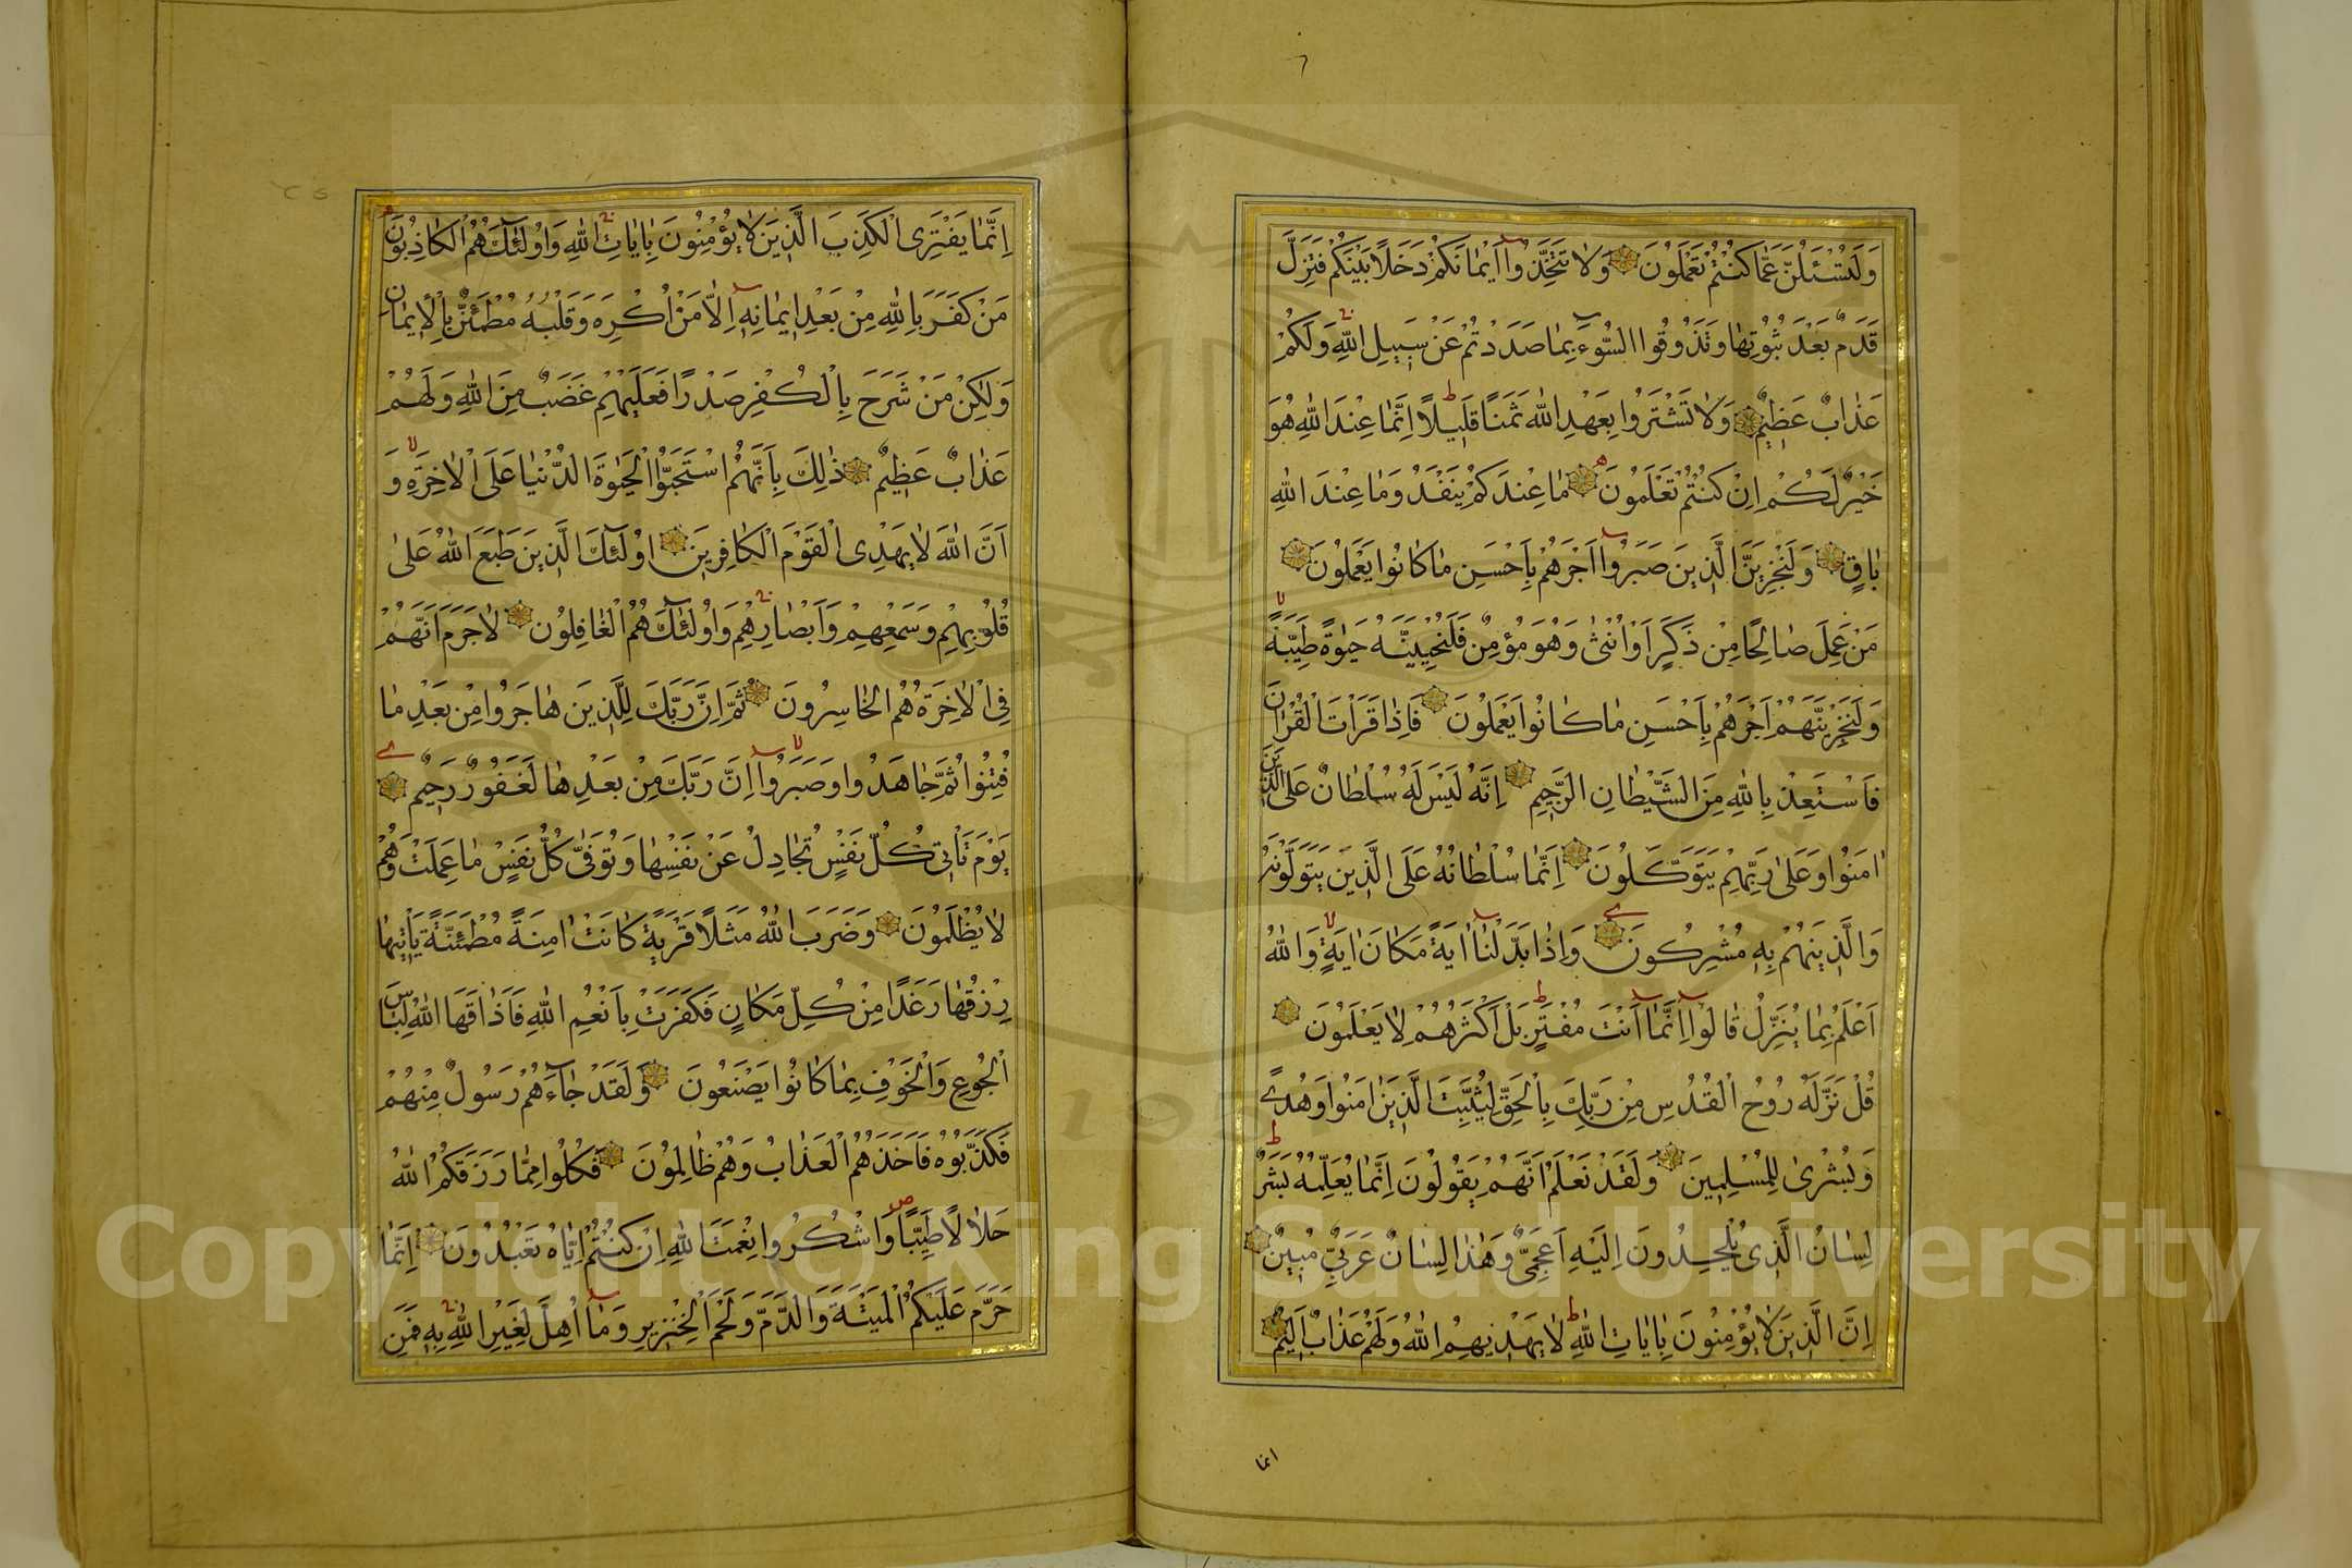 وَلَتُسْـَٔلُنَّ عَمَّا كُنْتُمْ تَعْمَلُونَ وَلَا تَتَّخِذُوا اَيْمَانَكُمْ دَخَلًا بَيْنَكُمْ فَتَزِلَّ
قَدَمٌ بَعْدَ ثُبُوتِهَا وَتَذُوقُوا السُّوٓءَ بِمَا صَدَدْتُمْ عَنْ سَبِيلِ اللّٰهِ وَلَكُمْ
عَذَابٌ عَظِيمٌ وَلَا تَشْتَرُوا بِعَهْدِ اللّٰهِ ثَمَنًا قَلِيلًا اِنَّمَا عِنْدَ اللّٰهِ هُوَ
خَيْرٌ لَكُمْ اِنْ كُنْتُمْ تَعْلَمُونَ مَا عِنْدَكُمْ يَنْفَدُ وَمَا عِنْدَ اللّٰهِ
بَاقٍ وَلَنَجْزِيَنَّ الَّذِينَ صَبَرُوا اَجْرَهُمْ بِاَحْسَنِ مَا كَانُوا يَعْمَلُونَ
مَنْ عَمِلَ صَالِحًا مِنْ ذَكَرٍ اَوْ اُنْثٰى وَهُوَ مُؤْمِنٌ فَلَنُحْيِيَنَّهُ حَيٰوةً طَيِّبَةً
وَلَنَجْزِيَنَّهُمْ اَجْرَهُمْ بِاَحْسَنِ مَا كَانُوا يَعْمَلُونَ فَاِذَا قَرَاْتَ الْقُرْاٰنَ
فَاسْتَعِذْ بِاللّٰهِ مِنَ الشَّيْطَانِ الرَّجِيمِ اِنَّهُ لَيْسَ لَهُ سُلْطَانٌ عَلَى الَّذِينَ
اٰمَنُوا وَعَلٰى رَبِّهِمْ يَتَوَكَّلُونَ اِنَّمَا سُلْطَانُهُ عَلَى الَّذِينَ يَتَوَلَّوْنَهُ
وَالَّذِينَهُمْ بِهِ مُشْرِكُونَ وَاِذَا بَدَّلْنَا اٰيَةً مَكَانَ اٰيَةٍ وَاللّٰهُ
اَعْلَمُ بِمَا يُنَزِّلُ قَالُوا اِنَّمَا اَنْتَ مُفْتَرٍ بَلْ اَكْثَرُهُمْ لَا يَعْلَمُونَ
قُلْ نَزَّلَهُ رُوحُ الْقُدُسِ مِنْ رَبِّكَ بِالْحَقِّ لِيُثَبِّتَ الَّذِينَ اٰمَنُوا وَهُدًى
وَبُشْرٰى لِلْمُسْلِمِينَ وَلَقَدْ نَعْلَمُ اَنَّهُمْ يَقُولُونَ اِنَّمَا يُعَلِّمُهُ بَشَرٌ
لِسَانُ الَّذِى يُلْحِدُونَ اِلَيْهِ اَعْجَمِىٌّ وَهٰذَا لِسَانٌ عَرَبِىٌّ مُبِينٌ
اِنَّ الَّذِينَ لَا يُؤْمِنُونَ بِاٰيَاتِ اللّٰهِ لَا يَهْدِيهِمُ اللّٰهُ وَلَهُمْ عَذَابٌ اَلِيمٌ
انما
اِنَّمَا يَفْتَرِى الْكَذِبَ الَّذِينَ لَا يُؤْمِنُونَ بِاٰيَاتِ اللّٰهِ وَاُولٰٓئِكَ هُمُ الْكَاذِبُونَ
مَنْ كَفَرَ بِاللّٰهِ مِنْ بَعْدِ اِيمَانِهِ اِلَّا مَنْ اُكْرِهَ وَقَلْبُهُ مُطْمَئِنٌّ بِالْاِيمَانِ
وَلٰكِنْ مَنْ شَرَحَ بِالْكُفْرِ صَدْرًا فَعَلَيْهِمْ غَضَبٌ مِنَ اللّٰهِ وَلَهُمْ
عَذَابٌ عَظِيمٌ ذٰلِكَ بِاَنَّهُمُ اسْتَحَبُّوا الْحَيٰوةَ الدُّنْيَا عَلَى الْاٰخِرَةِ وَ
اَنَّ اللّٰهَ لَا يَهْدِى الْقَوْمَ الْكَافِرِينَ اُولٰٓئِكَ الَّذِينَ طَبَعَ اللّٰهُ عَلٰى
قُلُوبِهِمْ وَسَمْعِهِمْ وَاَبْصَارِهِمْ وَاُولٰٓئِكَ هُمُ الْغَافِلُونَ لَا جَرَمَ اَنَّهُمْ
فِى الْاٰخِرَةِ هُمُ الْخَاسِرُونَ ثُمَّ اِنَّ رَبَّكَ لِلَّذِينَ هَاجَرُوا مِنْ بَعْدِ مَا
فُتِنُوا ثُمَّ جَاهَدُوا وَصَبَرُوا اِنَّ رَبَّكَ مِنْ بَعْدِهَا لَغَفُورٌ رَحِيمٌ
يَوْمَ تَاْتِى كُلُّ نَفْسٍ تُجَادِلُ عَنْ نَفْسِهَا وَتُوَفّٰى كُلُّ نَفْسٍ مَا عَمِلَتْ وَهُمْ
لَا يُظْلَمُونَ وَضَرَبَ اللّٰهُ مَثَلًا قَرْيَةً كَانَتْ اٰمِنَةً مُطْمَئِنَّةً يَاْتِيهَا
رِزْقُهَا رَغَدًا مِنْ كُلِّ مَكَانٍ فَكَفَرَتْ بِاَنْعُمِ اللّٰهِ فَاَذَاقَهَا اللّٰهُ لِبَاسَ
الْجُوعِ وَالْخَوْفِ بِمَا كَانُوا يَصْنَعُونَ وَلَقَدْ جَآءَهُمْ رَسُولٌ مِنْهُمْ
فَكَذَّبُوهُ فَاَخَذَهُمُ الْعَذَابُ وَهُمْ ظَالِمُونَ فَكُلُوا مِمَّا رَزَقَكُمُ اللّٰهُ
حَلَالًا طَيِّبًا وَاشْكُرُوا نِعْمَتَ اللّٰهِ اِنْ كُنْتُمْ اِيَّاهُ تَعْبُدُونَ اِنَّمَا
حَرَّمَ عَلَيْكُمُ الْمَيْتَةَ وَالدَّمَ وَلَحْمَ الْخِنْزِيرِ وَمَا اُهِلَّ لِغَيْرِ اللّٰهِ بِهِ فَمَنِ
Copyright © King Saud University